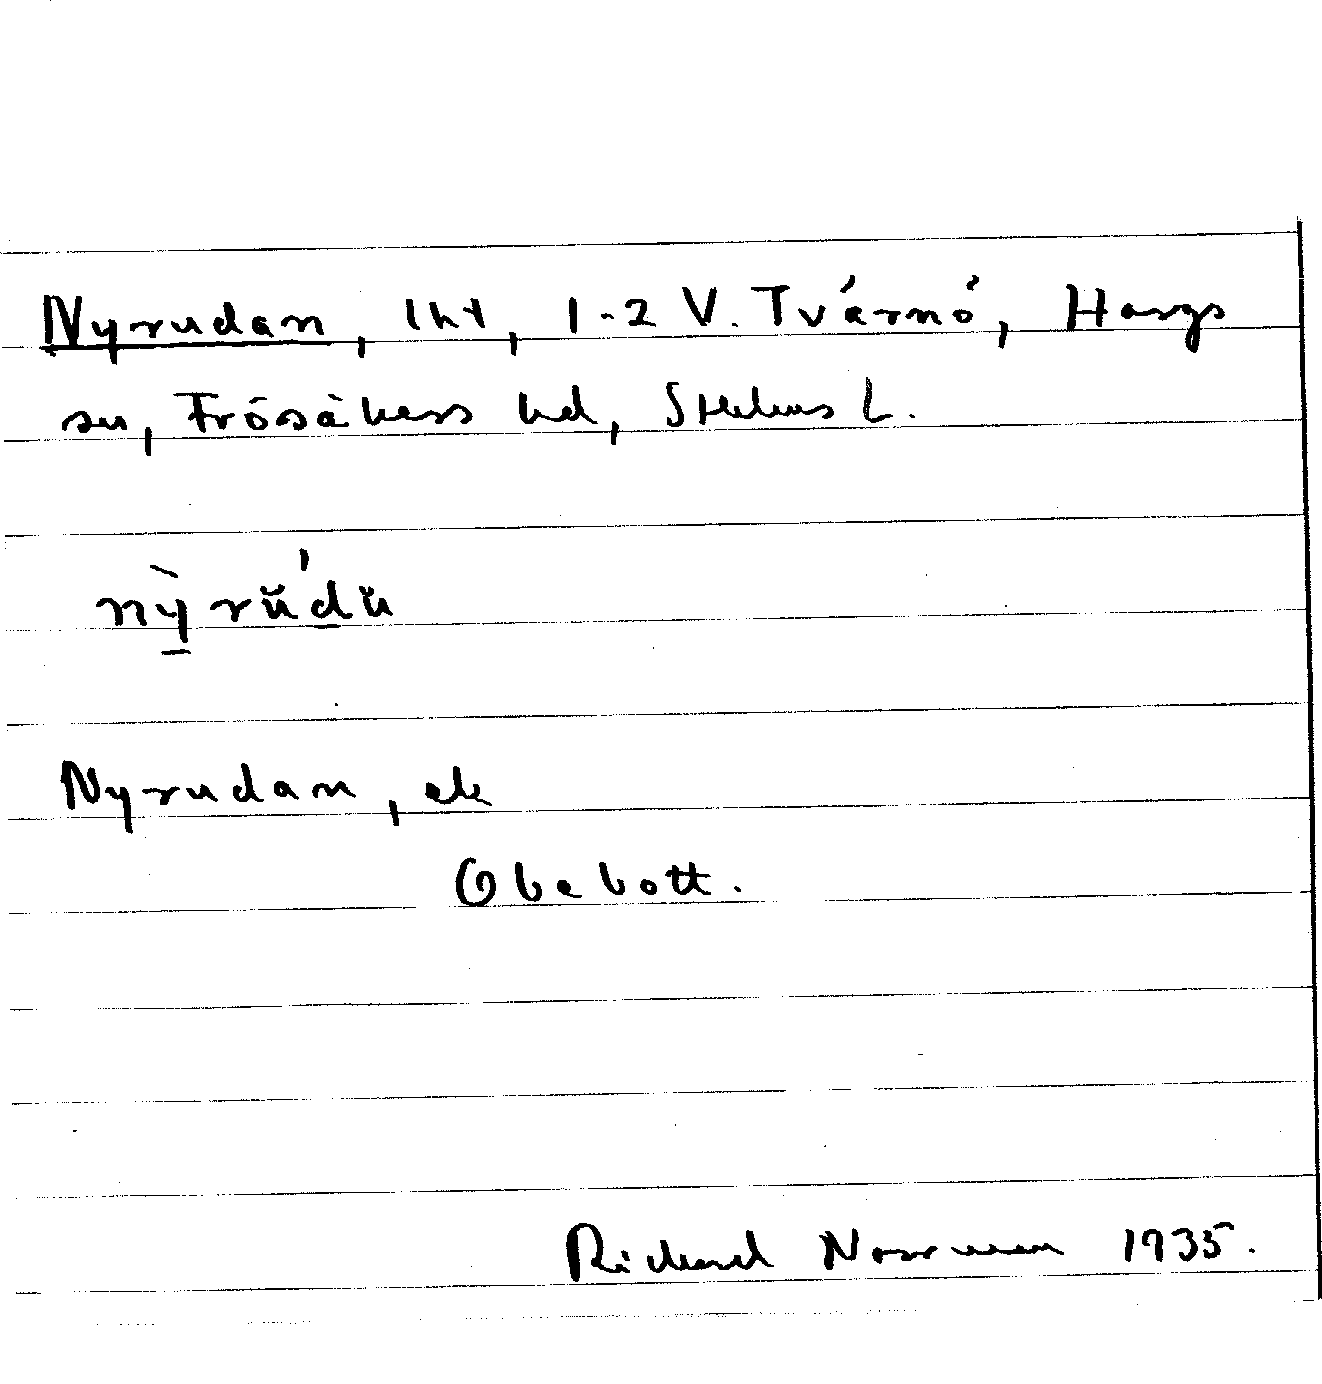 Nyrudan, lht, 1-2 V. Tvärnö, Hargs
sn, Frösåkers hd, Sthlms L.
nỳrŭ́dŭ
Nyrudan, ek
Obebott.
Richard Norrman 1935.